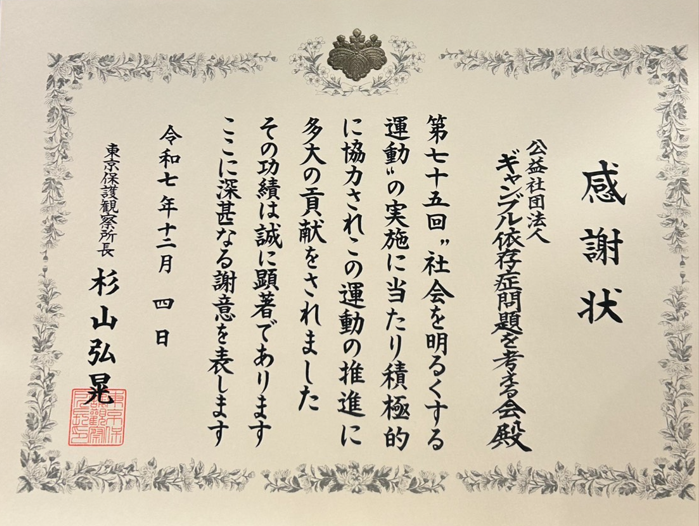 感謝状
公益社団法人
ギャンブル依存症問題を考える会殿
第七十五回〝社会を明るくする
運動〟の実施に当たり積極的
に協力されこの運動の推進に
多大の貢献をされました
その功績は誠に顕著であります
ここに深甚なる謝意を表します
令和七年十二月 四日
東京保護観察所長 杉山弘晃